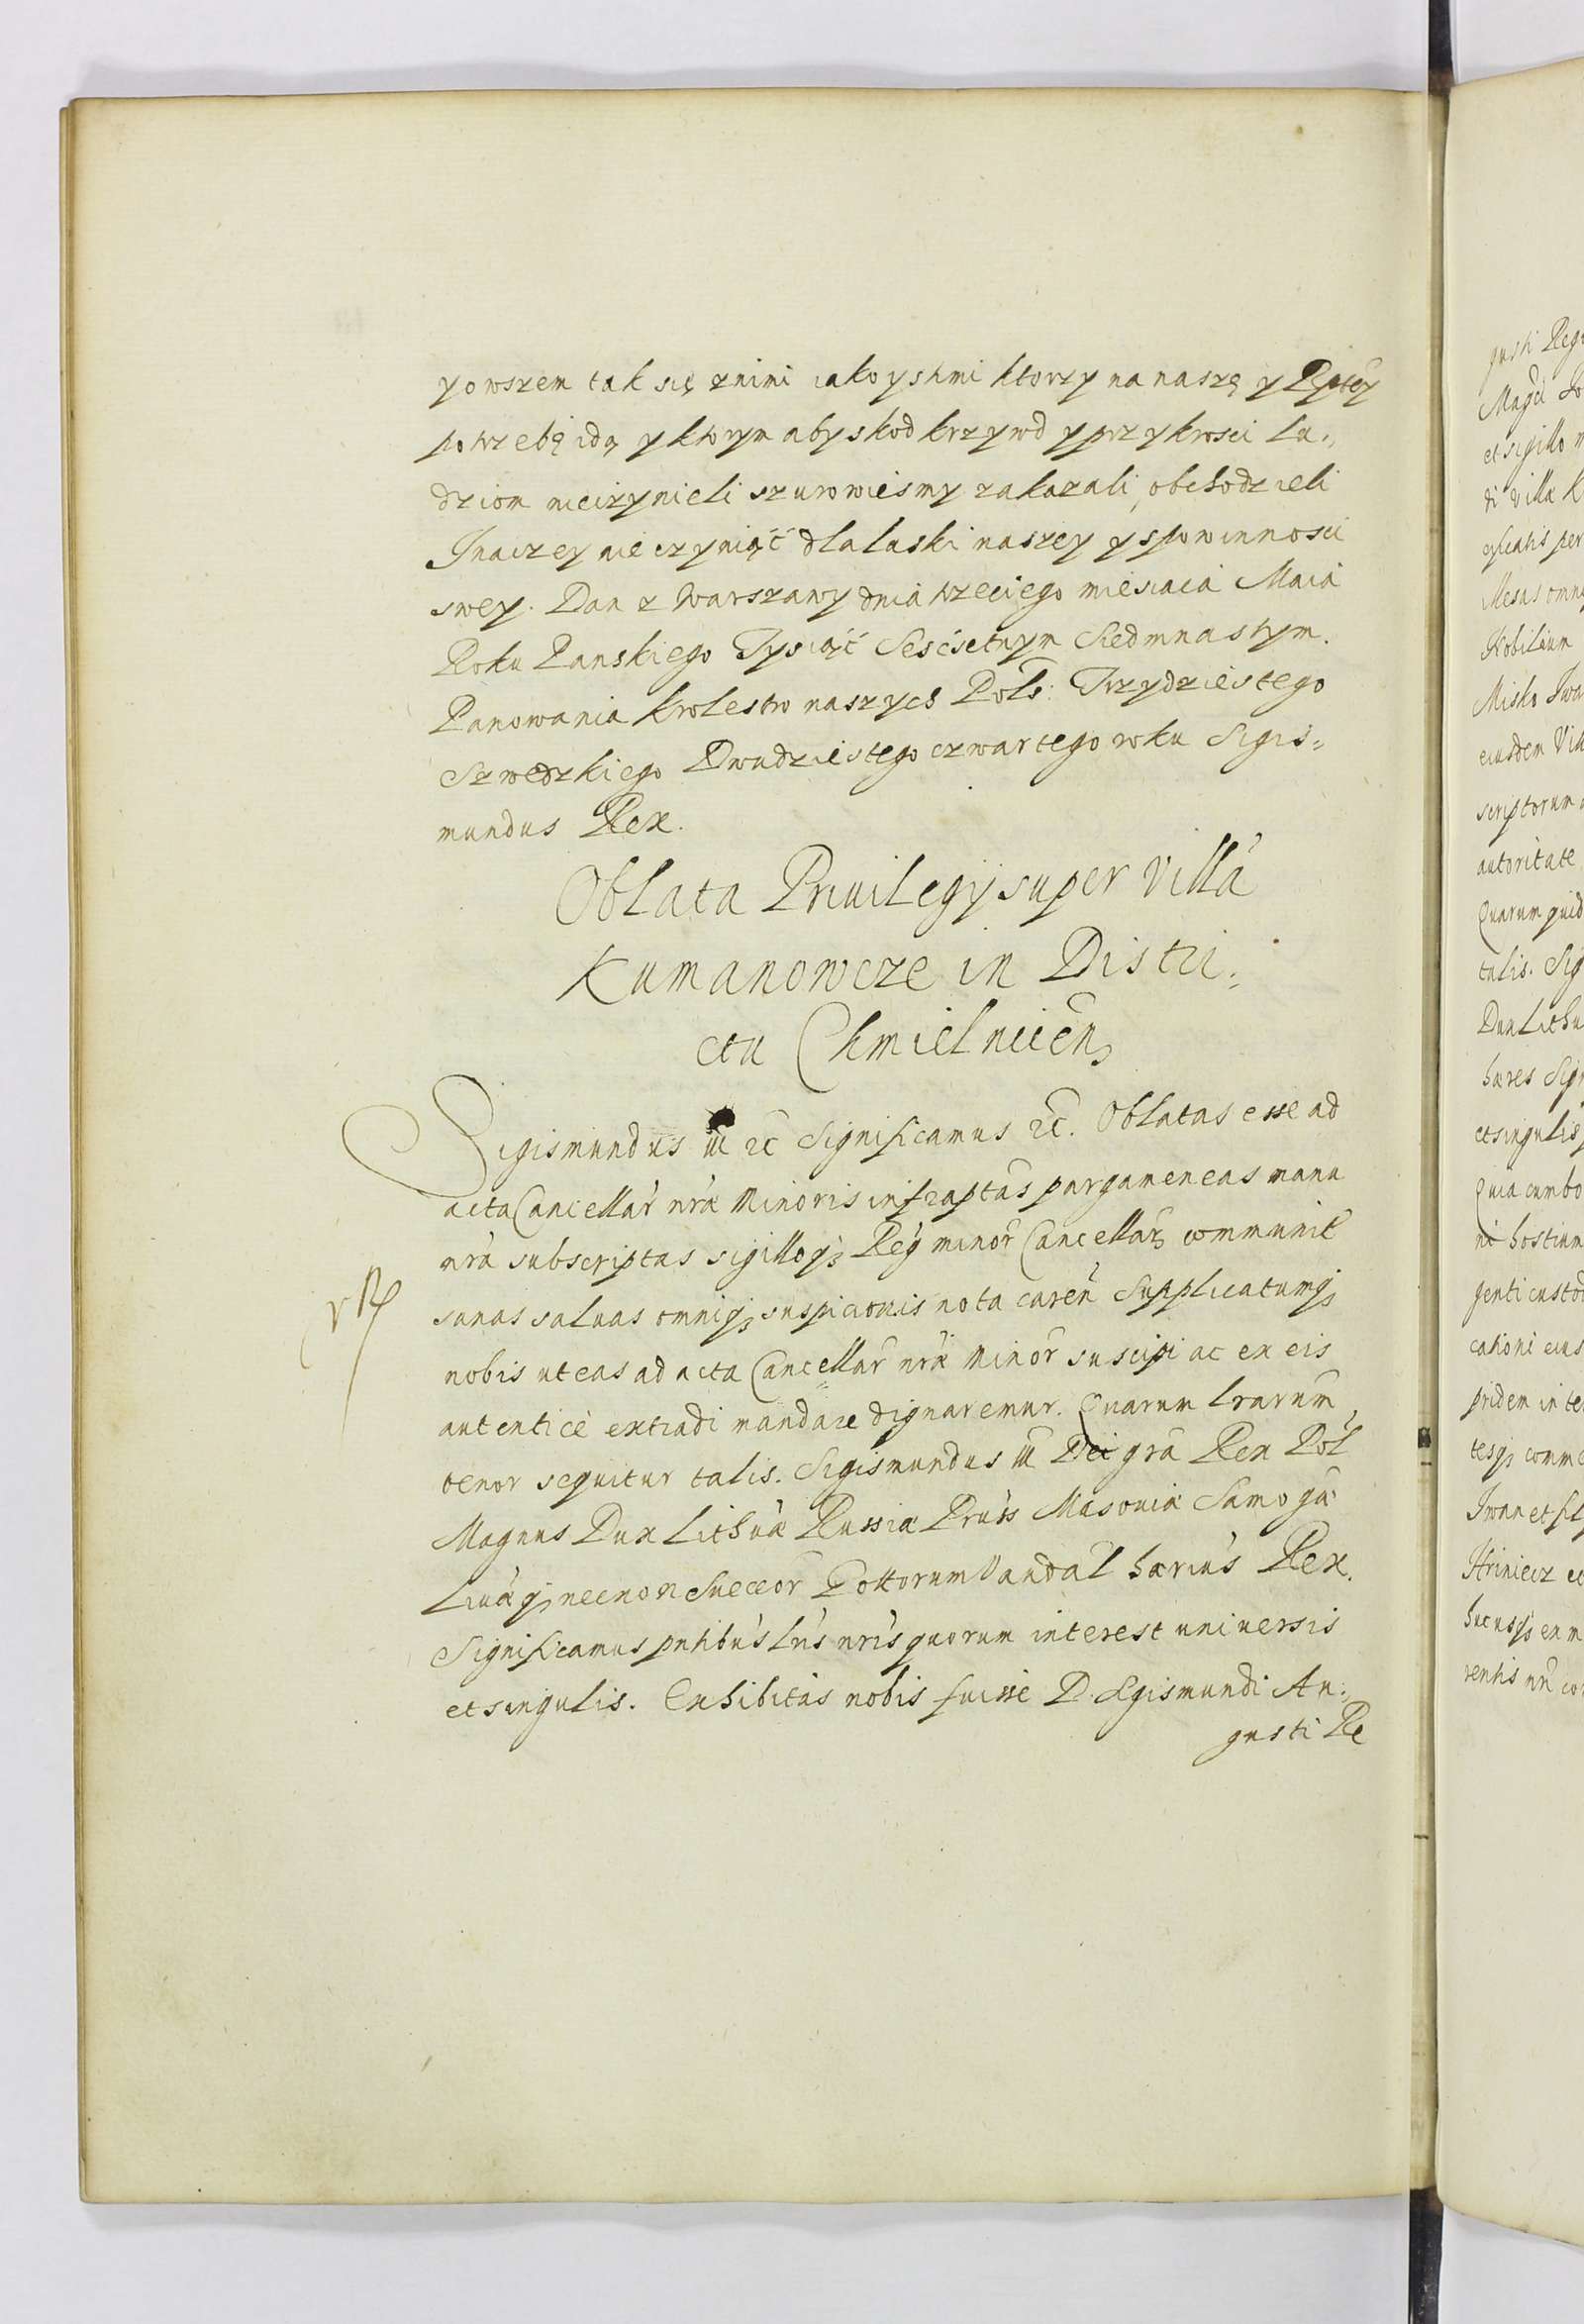 y owszem tak się znimi iako y stmi ktorzy na naszę y Rptey
potrzebę idą y ktorym aby skod krzywd y przykrosci lu„
dziom nieczynieli surowiesmy zakazali, obchodzieli
Inaczey nie czyniąć dla laski naszey y spowinnosci
swey. Dan z Warszawy dnia trzeciego miesiaca Maia
Roku Panskiego Tysiąć Sescsetnym Siedmnastym.
Panowania krolestw naszych Pols: Trzydziestego
Szwedzkiego Dwudziestego czwartego roku Sigis„
mundus Rex.
Oblata Priuilegÿ super Villa
Kumanowcze in Distri„
ctu Chmielnicen̄
Sigismundus III etc Significamus etc. Oblatas esse ad
acta Cancellar nrae Minoris infraptas pargameneas manu
nra subscriptas sigilloqꝫ Reg minor Cancellar communit
sanas saluas omniqꝫ suspicionis nota caren Supplicatumqꝫ
nobis ut eas ad acta Cancellar nrae Minor suscipi ac ex eis
autentice extradi mandare dignaremur. Quarum lrarum
tenor sequitur talis. Sigismundus III Dei gra Rex Pol
Magnus Dux Lithuae Russiae Pruss Masouiae Samogit
Liuaeqꝫ necnon Suecor Gottorum Vandal haerius Rex.
Significamus pntibus lris nris quorum interest uniuersis
et singulis. Exhibitas nobis fuisse D. Sigismundi Au„
gusti Re
gusti Reg
et sigillo
di Villae K
Mesas omn
Nobilium
Misko Iwa
eiusdem Vill
scriptorum
autoritate
Quarum quid
talis. Sig
Dux Lithu
haeres Sig
et singulis
Quia cum bo
hostium
genti custod
cationi eius
pridem in te
tesqꝫ comme
Iwan et fil